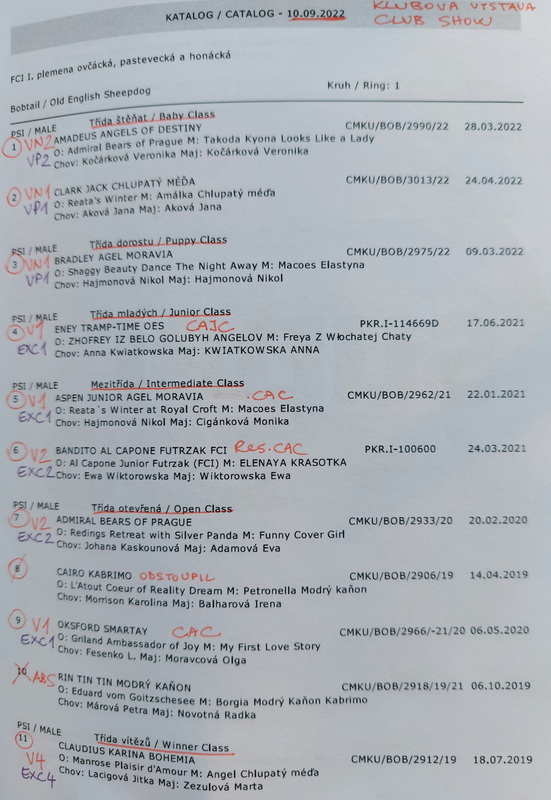 KATALOG / CATALOG - 10.09.2022 KLUBOVÁ VÝSTAVA
CLUB SHOW
FCI I. plemena ovčácká, pastevecká a honácká
Kruh / Ring: 1
Bobtail / Old English Sheepdog
PSI / MALE Třída štěňat / Baby Class
1 VN2 AMADEUS ANGELS OF DESTINY CMKU/BOB/2990/22 28.03.2022
VP2 O: Admiral Bears of Prague M: Takoda Kyona Looks Like a Lady
Chov: Kočárková Veronika Maj: Kočárková Veronika
2 VN1 CLARK JACK CHLUPATÝ MÉĎA CMKU/BOB/3013/22 24.04.2022
VP1 O: Reata's Winter M: Amálka Chlupatý méďa
Chov: Aková Jana Maj: Aková Jana
PSI / MALE Třída dorostu / Puppy Class
3 VN1 BRADLEY AGEL MORAVIA CMKU/BOB/2975/22 09.03.2022
VP1 O: Shaggy Beauty Dance The Night Away M: Macoes Elastyna
Chov: Hajmonová Nikol Maj: Hajmonová Nikol
PSI / MALE Třída mladých / Junior Class
4 V1 ENEY TRAMP-TIME OES CAJC PKR.I-114669D 17.06.2021
EXC1 O: ZHOFREY IZ BELO GOLUBYH ANGELOV M: Freya Z Włochatej Chaty
Chov: Anna Kwiatkowska Maj: KWIATKOWSKA ANNA
PSI / MALE Mezitřída / Intermediate Class
5 V1 ASPEN JUNIOR AGEL MORAVIA .CAC CMKU/BOB/2962/21 22.01.2021
EXC1 O: Reata´s Winter at Royal Croft M: Macoes Elastyna
Chov: Hajmonová Nikol Maj: Cigánková Monika
6 V2 BANDITO AL CAPONE FUTRZAK FCI Res.CAC PKR.I-100600 24.03.2021
EXC2 O: Al Capone Junior Futrzak (FCI) M: ELENAYA KRASOTKA
Chov: Ewa Wiktorowska Maj: Wiktorowska Ewa
PSI / MALE Třída otevřená / Open Class
7 V2 ADMIRAL BEARS OF PRAGUE CMKU/BOB/2933/20 20.02.2020
EXC2 O: Redings Retreat with Silver Panda M: Funny Cover Girl
Chov: Johana Kaskounová Maj: Adamová Eva
8 CAIRO KABRIMO ODSTOUPIL CMKU/BOB/2906/19 14.04.2019
O: L'Atout Coeur of Reality Dream M: Petronella Modrý kaňon
Chov: Morrison Karolina Maj: Balharová Irena
9 V1 OKSFORD SMARTAY CAC CMKU/BOB/2966/-21/20 06.05.2020
EXC1 O: Griland Ambassador of Joy M: My First Love Story
Chov: Fesenko L. Maj: Moravcová Olga
10 ABS RIN TIN TIN MODRÝ KAŇON CMKU/BOB/2918/19/21 06.10.2019
O: Eduard vom Goitzschesee M: Borgia Modrý Kaňon Kabrimo
Chov: Márová Petra Maj: Novotná Radka
PSI / MALE Třída vítězů / Winner Class
11 CLAUDIUS KARINA BOHEMIA CMKU/BOB/2912/19 18.07.2019
V4 O: Manrose Plaisir d'Amour M: Angel Chlupatý méďa
EXC4 Chov: Lacigová Jitka Maj: Zezulová Marta